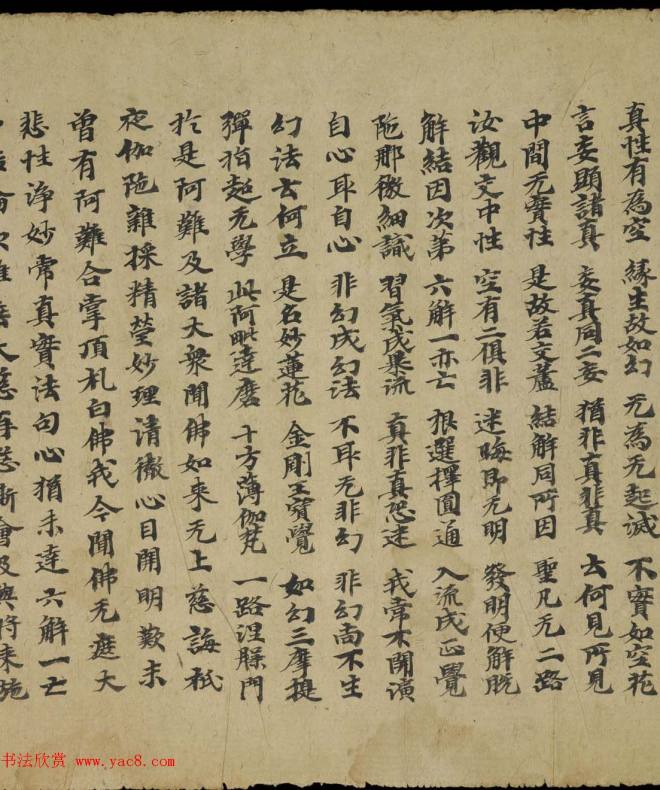 真性有為空 緣生故如幻 无為无起滅 不實如空花
言妄顯諸真 妄真同二妄 猶非真非真 云何見所見
中間无實性 是故若交蘆 結解同所因 聖凡无二路
汝觀交中性 空有二俱非 迷晦即无明 發明便解脫
解結因次第 六解一亦亡 根選擇圓通 入流成正覺
陁那微細識 習氣成暴流 真非真恐迷 我常不開演
自心取自心 非幻成幻法 不取无非幻 非幻尚不生
幻法云何立 是名妙蓮花 金剛王寶覺 如幻三摩提
彈指超无學 此阿毗達磨 十方薄伽梵 一路涅槃門
於是阿難及諸大衆聞佛如來无上慈誨祇
夜伽陁雜採精瑩妙理清徹心目開明歎未
曾有阿難合掌頂礼白佛我今聞佛无遮大
悲性淨妙常真實法句心猶未達六解一亡
大慈再愍斯會及與將来施
书法欣赏 www.yac8.com